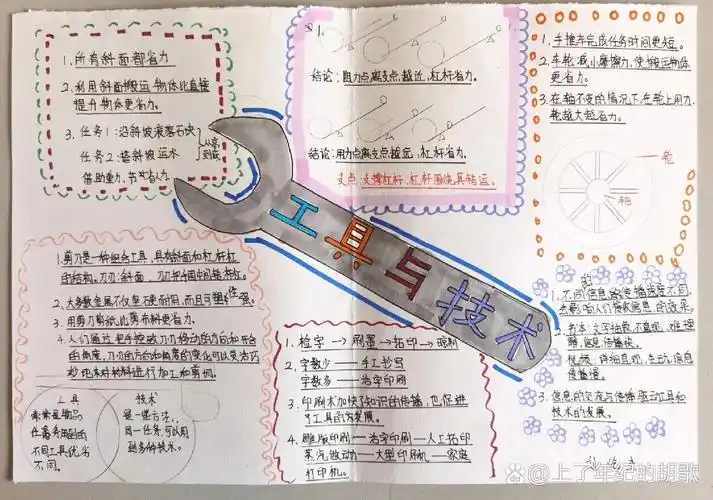 1.所有斜面都省力
2.利用斜面搬运物体比直接
提升物体更省力。
3.任务1:沿斜坡滚落石块
任务2:
借助重力,节省人力
结论:阻力点离支点越近,杠杆省力。
结论:用力点离支点越远,杠杆省力。
支点:支撑杠杆,杠杆围绕其转运。
1.手推车完成任务时间更短。
2.车轮减小摩擦力,使搬运物体
更省力。
3.在轴不变的情况下,在轮上用力,
轮越大越省力。
轮
轴
工具与技术
1.剪刀是一种组合工具,具有斜面和杠杆
的结构。刀刃:斜面,
2.大多数金属不仅坚硬耐用,而且可塑性强。
3.用剪刀剪纸比剪布料更省力。
4.人们通过把手控制刀刃移动的方向和开合
的角度,刀刃的方向和角度的变化可以灵活巧
妙地对材料进行加工和剪切。
工具
技术
是一些方法,
同一任务可以用
到多种技术。
不同工具优劣
不同。
1.检字→刷墨→拓印→晾刷
2.字数少——手工抄写
字数多——活字印刷
3.印刷术加快了知识的传播,也促进
了工具的发展。
4.雕版印刷——活字印刷——人工拓印
蒸汽做动——大型印刷机——家庭
打印机。
1.不同信息的传播速度不同,
也影响人们接收信息的效果。
2.书本:文字抽象,不直观,难理
解,信息传播快。
视频:详细直观,生动,信息
传播慢。
3.信息的交流与传播驱动工具和
技术的发展。
@上了年纪的胡歌